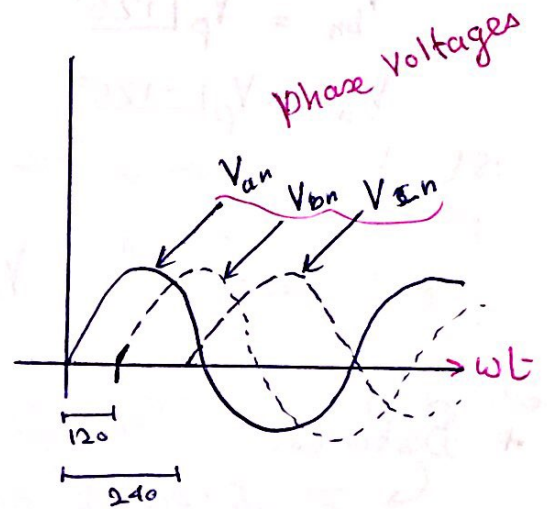 phase voltages
Van Vbn Vcn
ωt
120
240